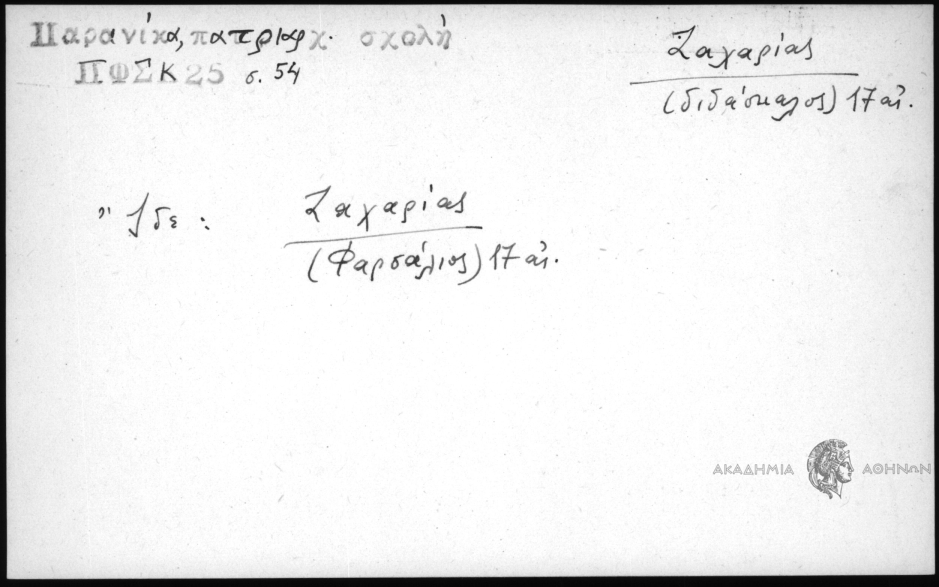 Παρανίκα, πατριαρχ. σχολή
ΠΦΣΚ 25 σ. 54
Ζαχαρίας
(διδάσκαλος) 17 αἰ.
Ἴδε :
Ζαχαρίας
(Φαρσάλιος) 17 αἰ.
ΑΚΑΔΗΜΙΑ ΑΘΗΝΩΝ